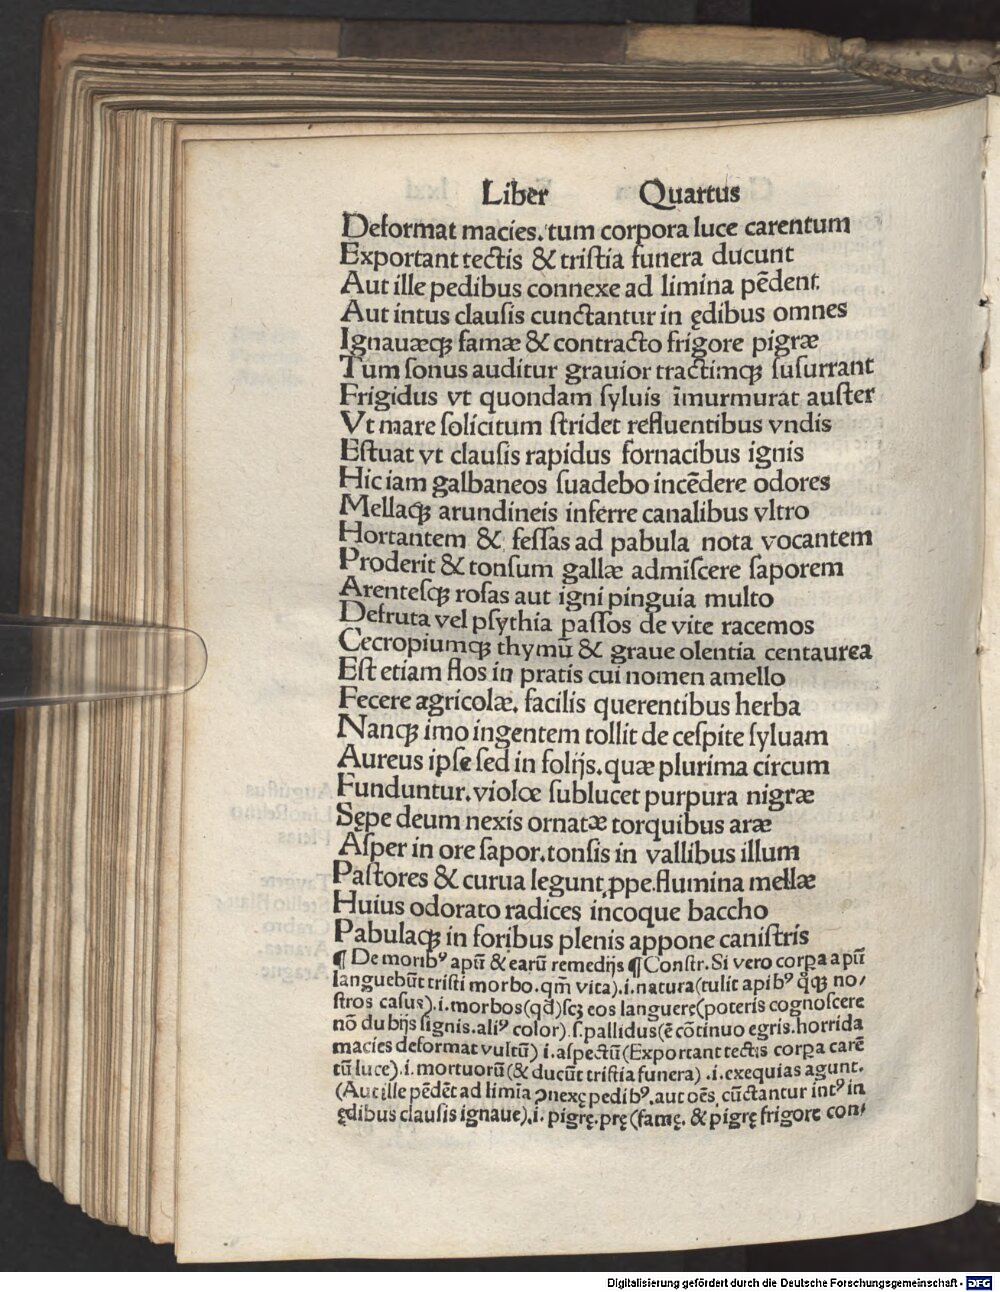 Liber Quartus
Deformat macies. tum corpora luce carentum
Exportant tectis & tristia funera ducunt
Aut ille pedibus connexe ad limina pēdent.
Aut intus clausis cunctantur in ędibus omnes
Ignauæqꝫ famæ & contracto frigore pigræ
Tum sonus auditur grauior tractimqꝫ susurrant
Frigidus vt quondam syluis īmurmurat auster
Vt mare solicitum stridet refluentibus vndis
Estuat vt clausis rapidus fornacibus ignis
Hic iam galbaneos suadebo incēdere odores
Mellaqꝫ arundineis inferre canalibus vltro
Hortantem & fessas ad pabula nota vocantem
Proderit & tonsum gallæ admiscere saporem
Arentesqꝫ rosas aut igni pinguia multo
Defruta vel psythia passos de vite racemos
Cecropiumqꝫ thymū & graue olentia centaurea
Est etiam flos in pratis cui nomen amello
Fecere agricolæ. facilis querentibus herba
Nanqꝫ imo ingentem tollit de cespite syluam
Aureus ipse sed in folijs. quæ plurima circum
Funduntur. violœ sublucet purpura nigræ
Sępe deum nexis ornatæ torquibus aræ
Asper in ore sapor. tonsis in vallibus illum
Pastores & curua legunt ꝓpe. flumina mellæ
Huius odorato radices incoque baccho
Pabulaqꝫ in foribus plenis appone canistris
¶ De moribꝰ apū & earū remedijs ¶ Constr. Si vero corꝑa apū
languebūt tristi morbo. qm̄ vita). i. natura (tulit apibꝰ q̊qꝫ no/
stros casus). i. morbos (qd) scꝫ eos languere (poteris cognoscere
nō dubijs signis. aliꝰ color). s. pallidus (ē cōtinuo egris. horrida
macies deformat vultū) i. aspectū (Exportant tectis corꝑa carē
tū luce). i. mortuorū (& ducūt tristia funera) . i. exequias agunt.
(Aut ille pēdēt ad limīa ↄnexę pedibꝰ. aut oēs cūctantur intꝰ in
ędibus clausis ignaue). i. pigrę. prę (famę. & pigrę frigore con/
Digitalisierung gefördert durch die Deutsche Forschungsgemeinschaft - DFG